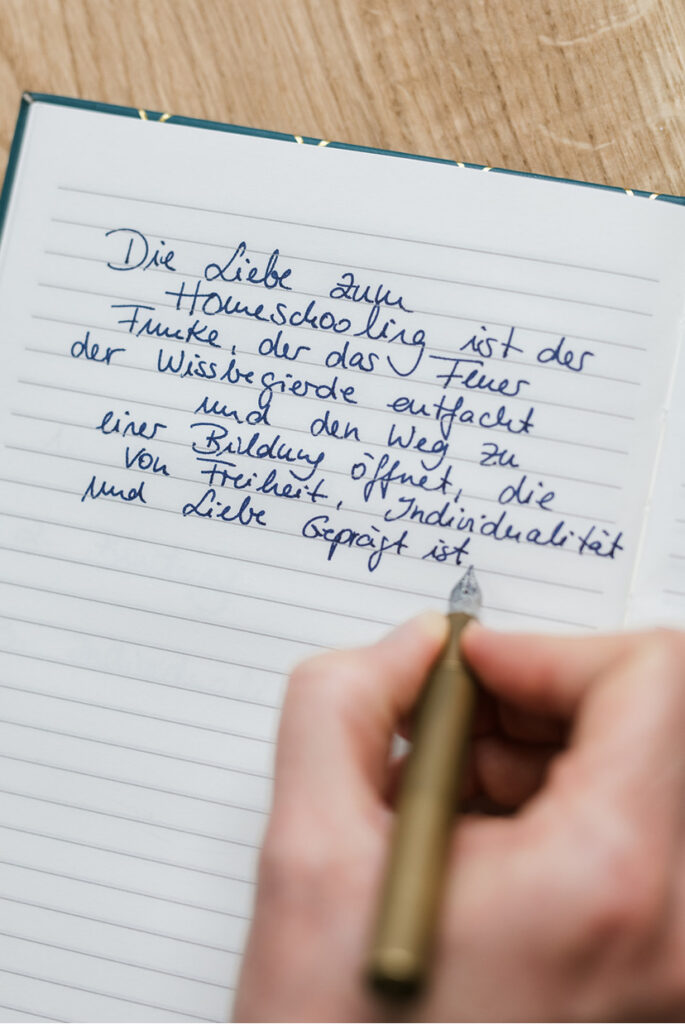 Die Liebe zum
Homeschooling ist der
Funke, der das Feuer
der Wissbegierde entfacht
und den Weg zu
einer Bildung öffnet, die
von Freiheit, Individualität
und Liebe Geprägt ist